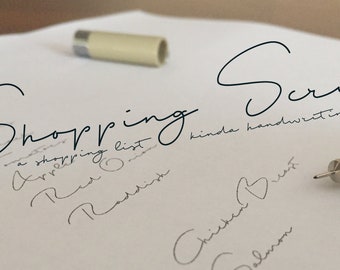 Shopping Scri
a shopping list kinda handwritin
Apple
Red Onion
Raddish
Chicken Breast
Salmon